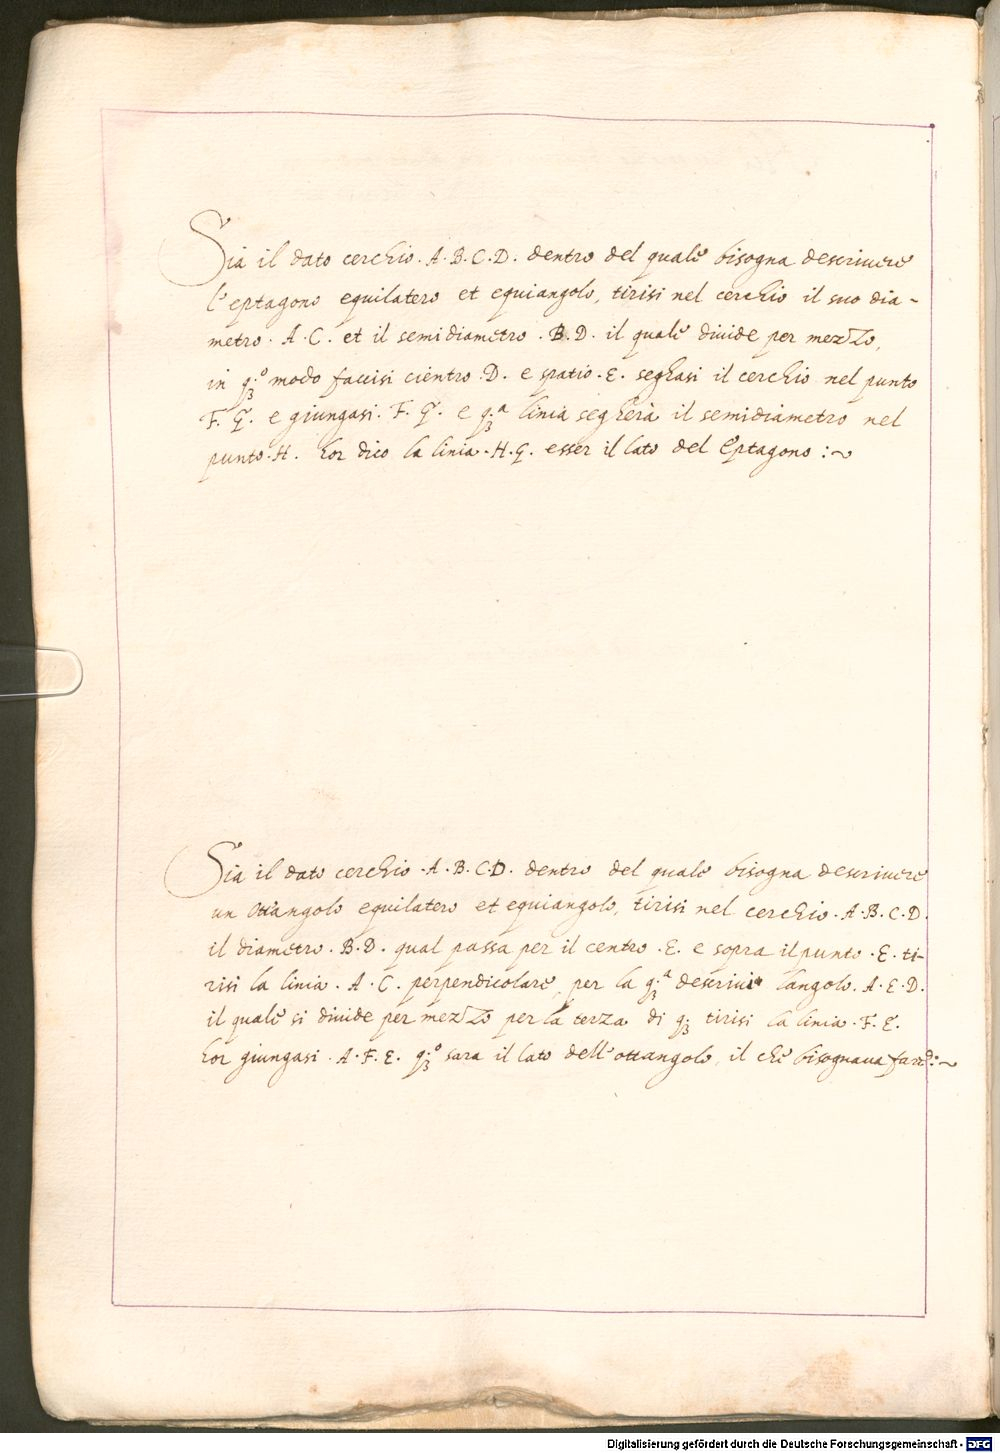 Sia il dato cerchio . A . B . C . D . dentro del quale bisogna descrivere
l'eptagono equilatero et equiangolo, tirisi nel cerchio il suo dia -
metro . A . C . et il semidiametro . B . D . il quale diuide per mezzo,
in q.3o modo faccisi cientro . D . e spatio . E . seghasi il cerchio nel punto
F . G . e giungasi . F . G . e q.3a linia segherà il semidiametro nel
punto . H . hor dico la linia . H . G . esser il lato del Eptagono : ~
Sia il dato cerchio . A . B . C . D . dentro del quale bisogna descriuere
un Ottangolo equilatero et equiangolo, tirisi nel cerchio . A . B . C . D .
il diametro . B . D . qual passa per il centro . E . e sopra il punto . E . ti-
risi la linia . A . C . perpendicolare, per la q.3a descriui langolo . A . E . D .
il quale si diuide per mezzo per la terza di q.3 tirisi la linia . F . E .
hor giungasi . A . F . E . q.3o sara il lato dell'ottangolo, il che bisognaua fare : ~
Digitalisierung gefördert durch die Deutsche Forschungsgemeinschaft - DFG